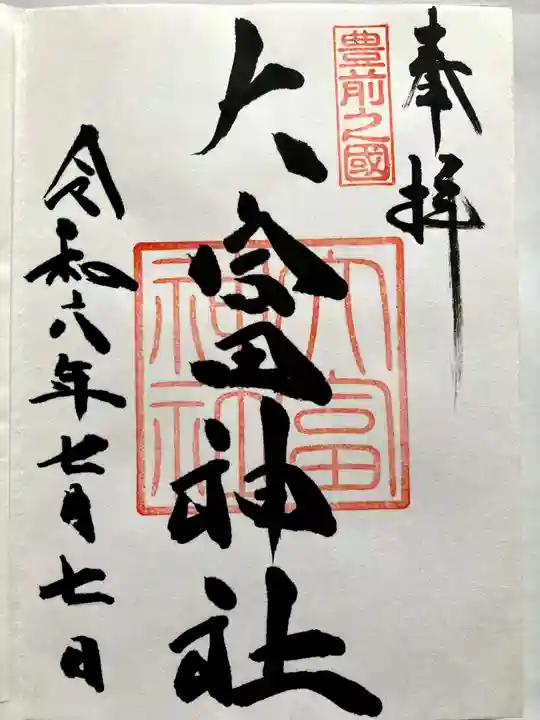 奉拝
豊前之國
大富神社
大富神社
令和六年七月七日